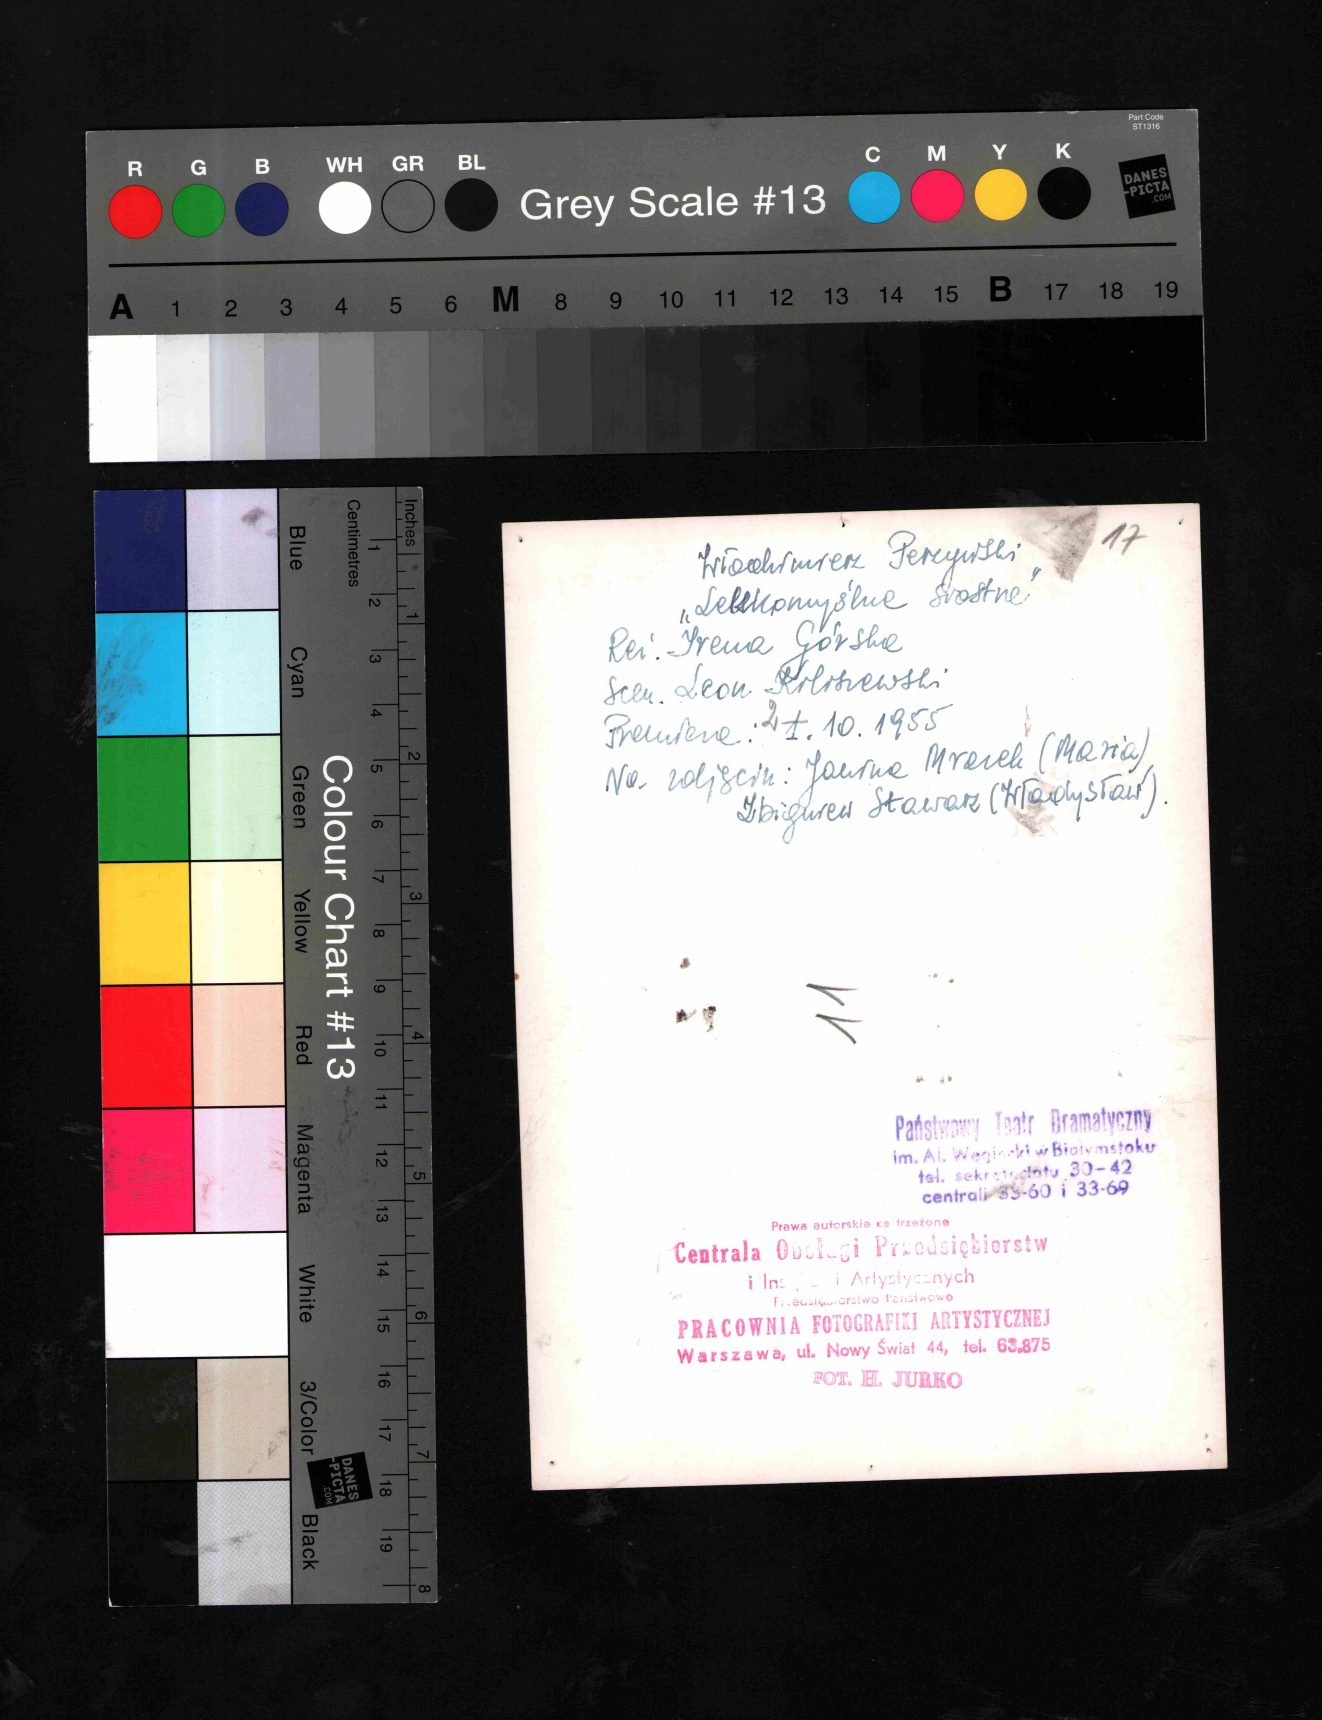 Part Code
ST1316
R G B WH GR BL Grey Scale #13 C M Y K
DANES
-PICTA
.COM
A 1 2 3 4 5 6 M 8 9 10 11 12 13 14 15 B 17 18 19
Colour Chart #13
Blue
Cyan
Green
Yellow
Red
Magenta
White
3/Color
Black
Centimetres
1 2 3 4 5 6 7 8 9 10 11 12 13 14 15 16 17 18 19
Inches
1 2 3 4 5 6 7 8
DANES
-PICTA
.COM
17
Włodzimierz Perzyński
„Lekkomyślna siostra"
Reż. Irena Górska
Scen. Leon
Premiera: 21. 10. 1955
Na zdjęciu: Janina Mrazek (Maria)
Zbigniew Stawarz (Władysław).
11
Państwowy Teatr Dramatyczny
im. Al. Węgierki w Białymstoku
tel. sekretariatu 30-42
centrali 33-60 i 33-69
Prawa autorskie zastrzeżone
Centrala Obsługi Przedsiębiorstw
i Artystycznych
Przedsiębiorstwo Państwowe
PRACOWNIA FOTOGRAFIKI ARTYSTYCZNEJ
Warszawa, ul. Nowy Świat 44, tel. 63.875
FOT. H. JURKO